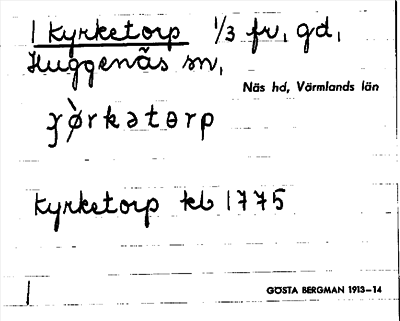 1 Kyrketorp 1/3 fr, gd,
Huggenäs sn,
Näs hd, Värmlands län
Kyrketorp kb 1775
GÖSTA BERGMAN 1913-14